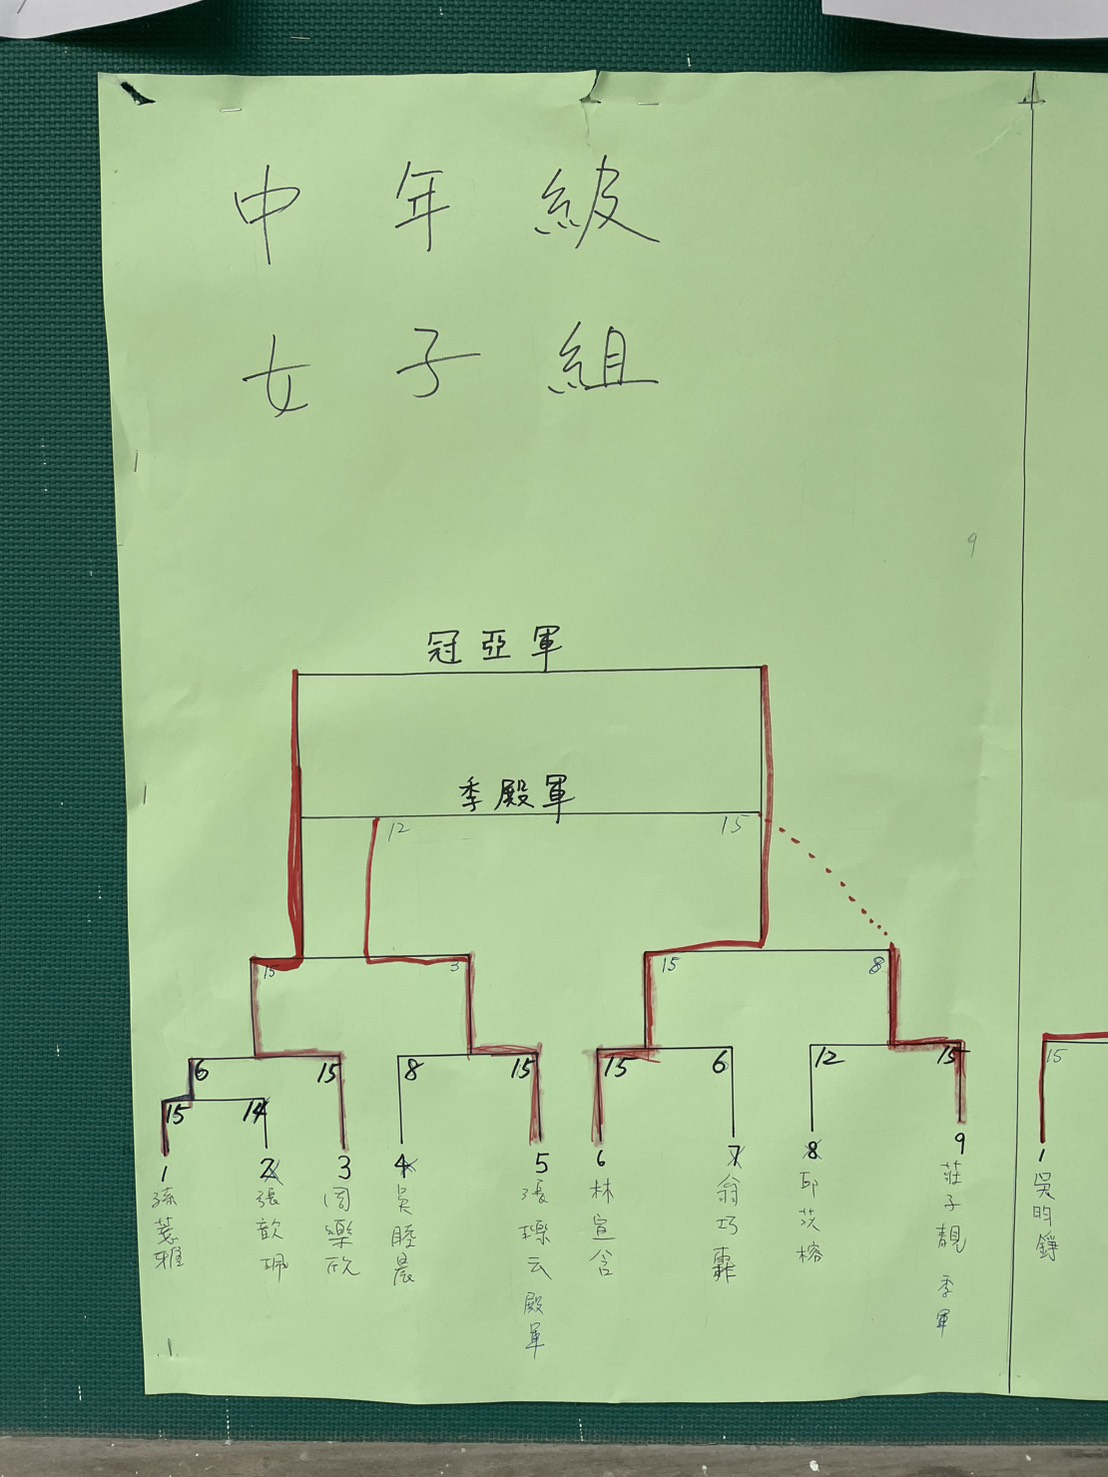 中年級
女子組
9
冠亞軍
季殿軍
12 15
15 3 15 8
6 15 8 15 15 6 12 15 15
15 14
1 2 3 4 5 6 7 8 9 1
張歆珮
周樂欣
吳睦晨
張瓅云 殿軍
林宣含
翁巧霏
邱苡榕
莊子靚 季軍
吳昀錚